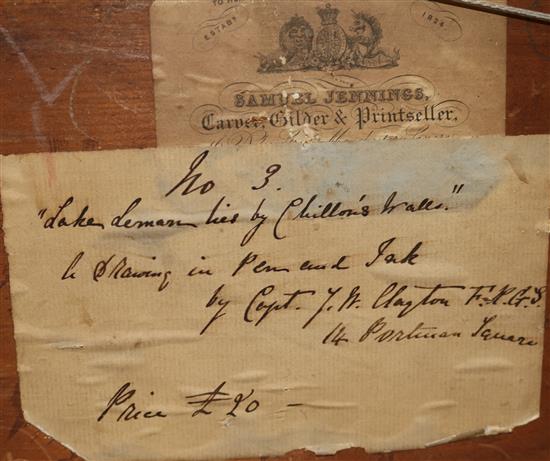 ESTABD 1824
SAMUEL JENNINGS,
Carver, Gilder & Printseller,
No 3.
"Lake Leman lies by Chillon's Walls."
A Drawing in Pen and Ink
by Capt. J. W. Clayton F.R.G.S.
14 Portman Square
Price £20 —